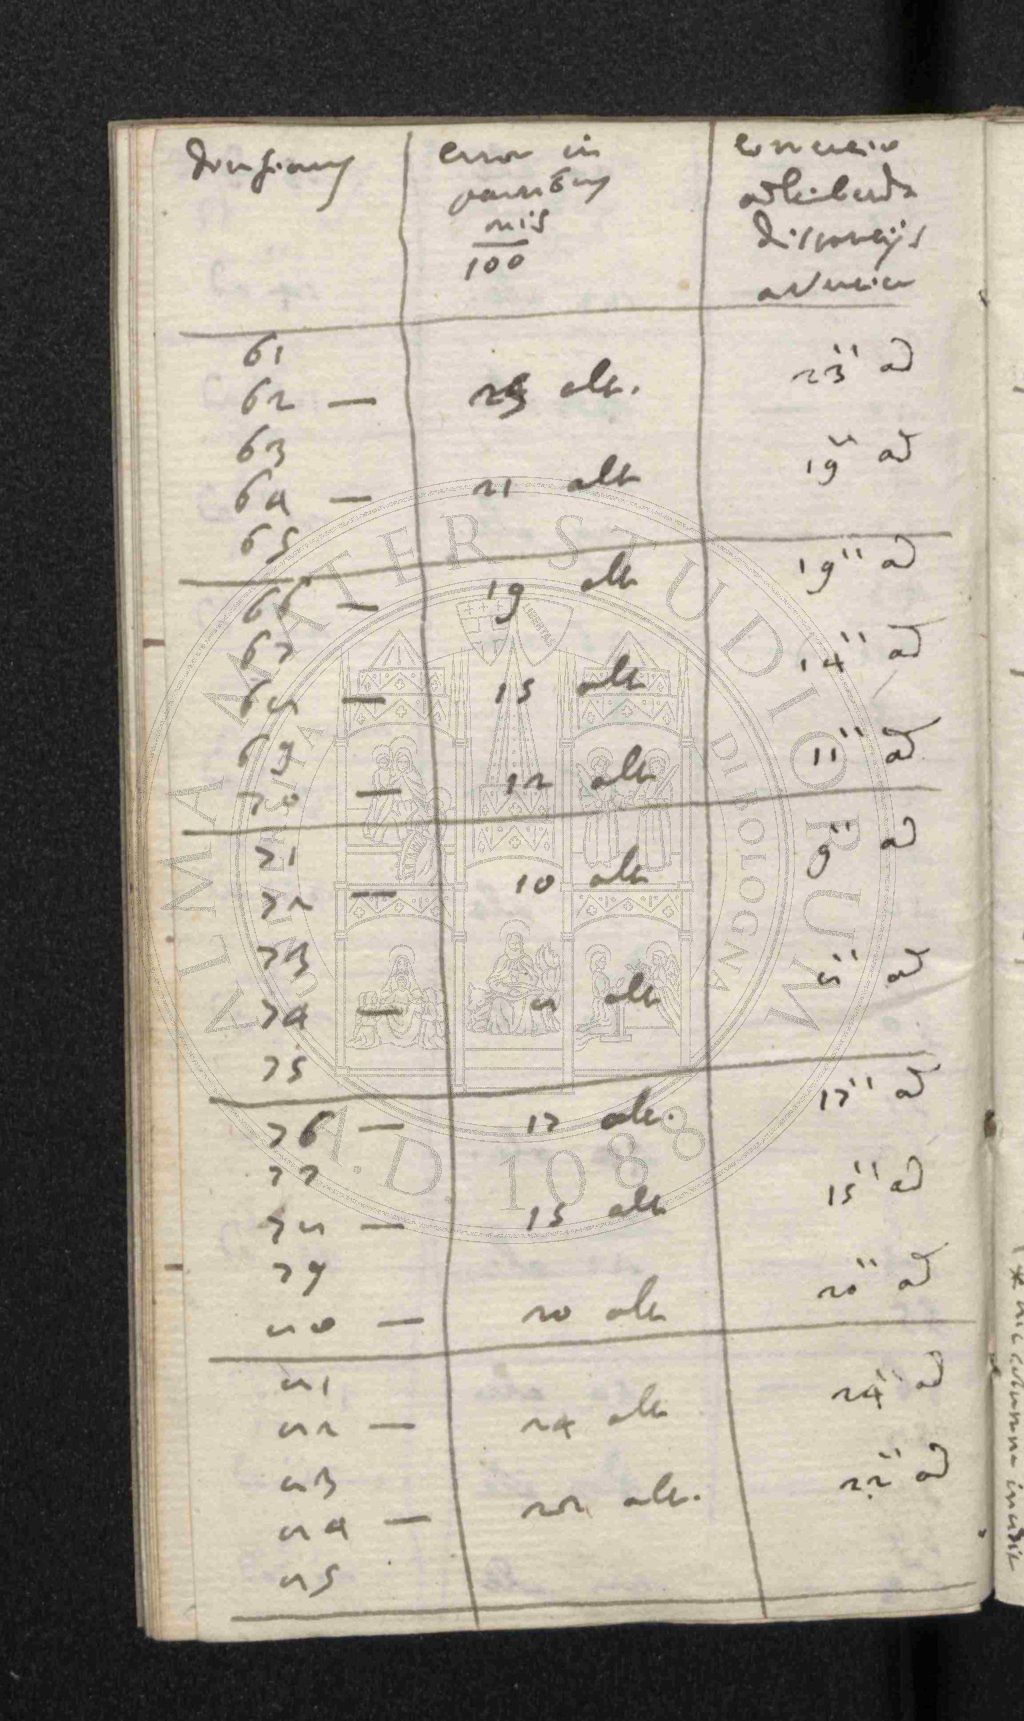 divisiones
error in
partibus
unis
100
correctio
adhibenda
distantijs
a vertice
61
23'' ad
62 — 25 alt.
63
19'' ad
64 — 21 alt
65
66 — 19 alt 19'' ad
67
14'' ad
68 — 15 alt
69
11'' ad
70 — 12 alt
71
9'' ad
72 — 10 alt
73
8'' ad
74 — 8 alt
75
76 — 17 alt. 17'' ad
77
15'' ad
78 — 15 alt
79
20'' ad
80 — 20 alt
81
24'' ad
82 — 24 alt
83
22'' ad
84 — 22 alt.
85
* hic columna incidit
ALMA MATER STUDIORUM
UNIVERSITÀ DI BOLOGNA
LIBERTAS
A.D. 1088